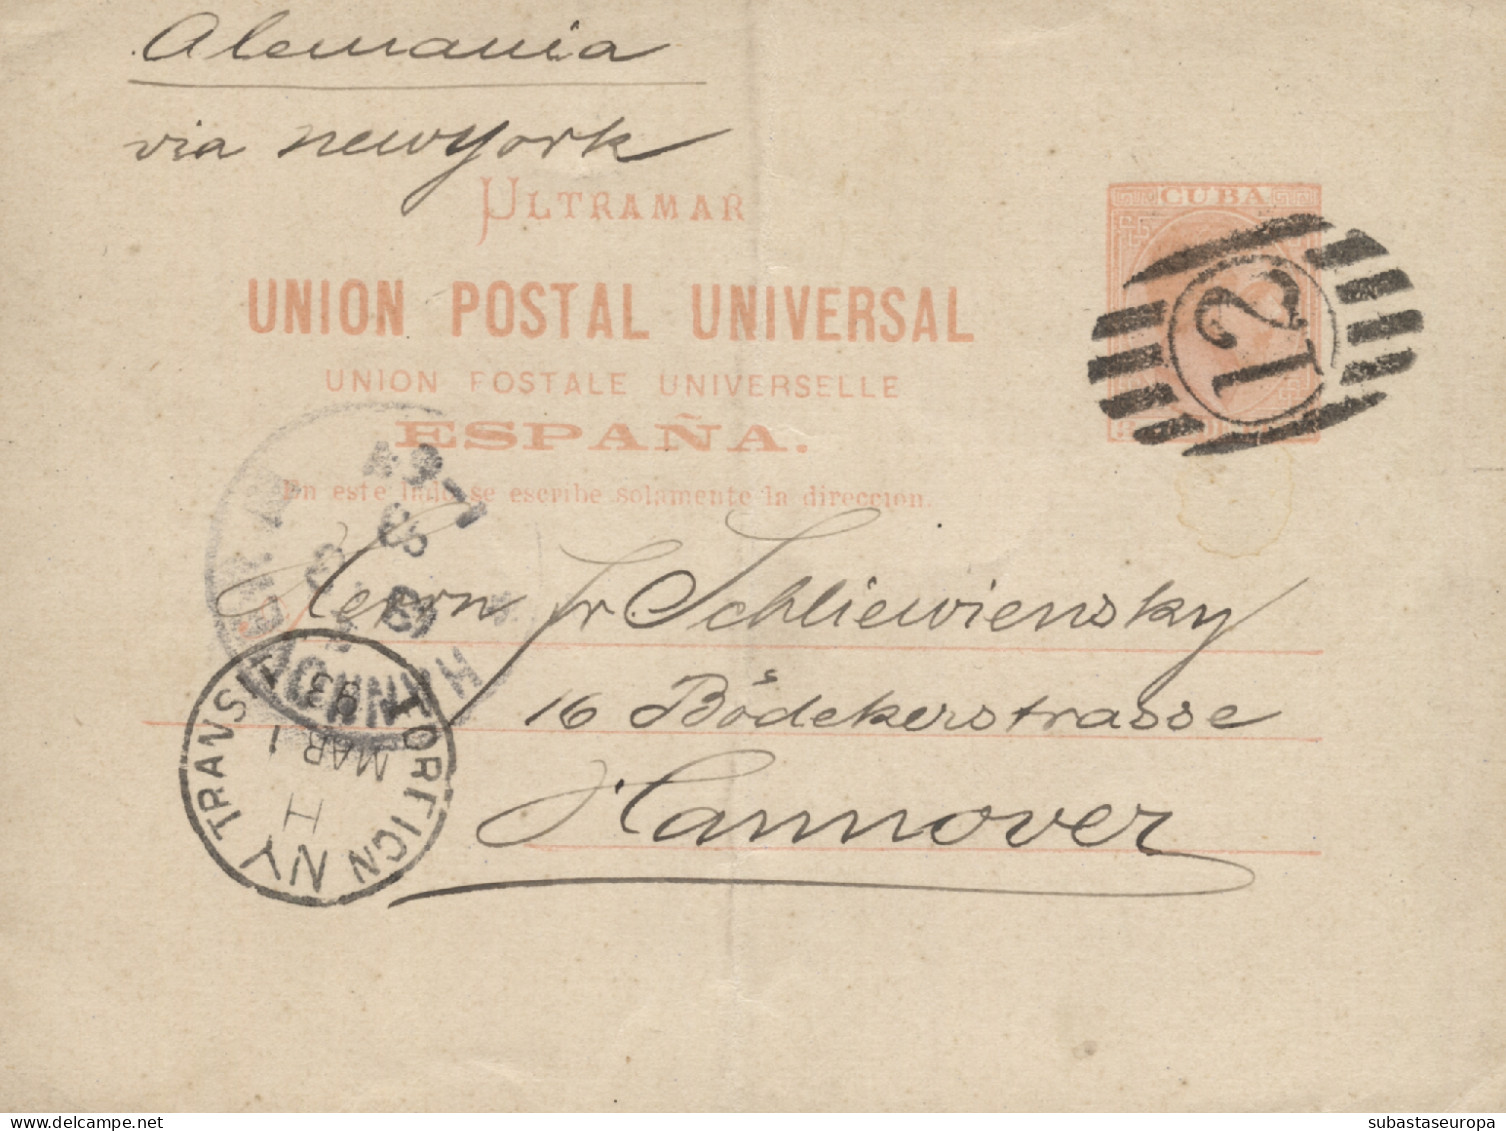 Alemania
via Newyork
ULTRAMAR
CUBA
UNION POSTAL UNIVERSAL
UNION POSTALE UNIVERSELLE
ESPAÑA.
En este lado se escribe solamente la direccion.
12
Herrn Fr Schliewiensky
16 Bödekerstrasse
Hannover
HANNOVER
6-7N
93
NY FOREIGN TRANSIT
H
MAR 1
93
delcampe.net
subastaseuropa